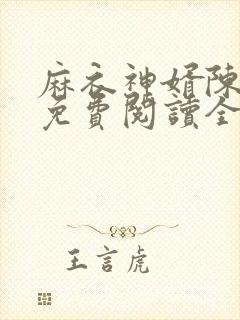 麻衣神婿陳
免費閱讀全
王言虎